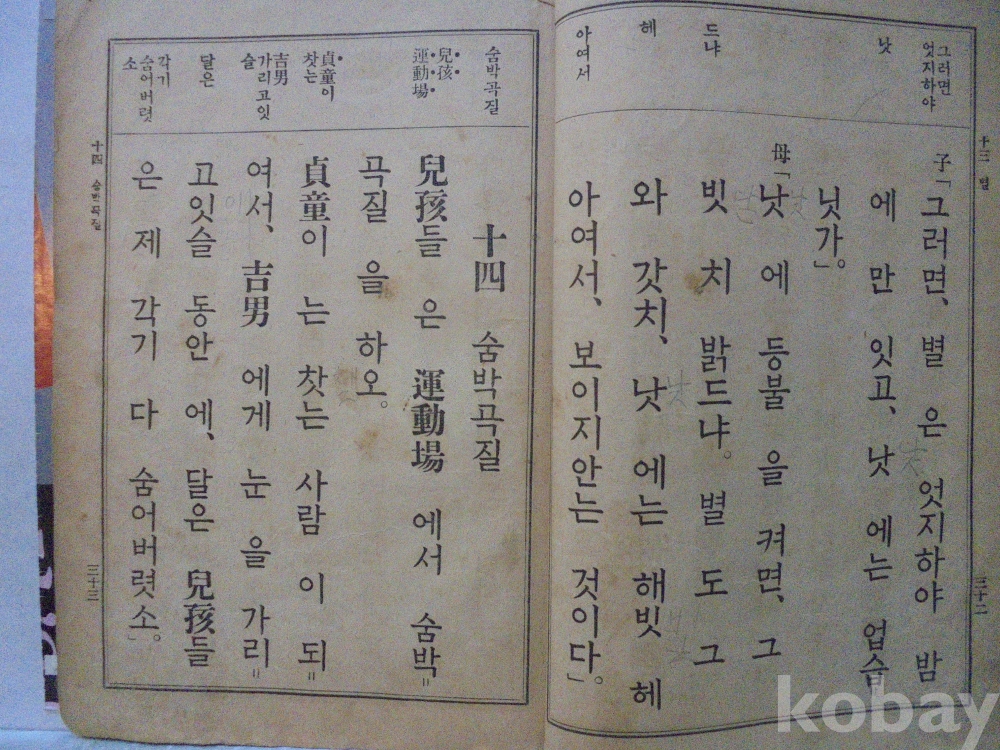 그러면
엇지하야
낫
드냐
헤
아여서
十三 별
子「그러면, 별 은 엇지하야 밤
에 만 잇고, 낫 에는 업슴
닛가。」
母「낫 에 등불 을 켜면, 그
빗 치 밝드냐。 별 도 그
와 갓치, 낫 에는 해빗 헤
아여서, 보이지안는 것이다。」
三十二
숨박곡질
兒孩
運動場
貞童이
찻는
吉男
가리고잇
슬
달은
각기
숨어버렷
소
十四 숨박곡질
兒孩들 은 運動場 에서 숨박=
곡질 을 하오。
貞童이 는 찻는 사람 이 되=
여서、 吉男 에게 눈 을 가리=
고잇슬 동안 에、 달은 兒孩들
은 제 각기 다 숨어버렷소。
十四 숨박곡질
三十三
kobay